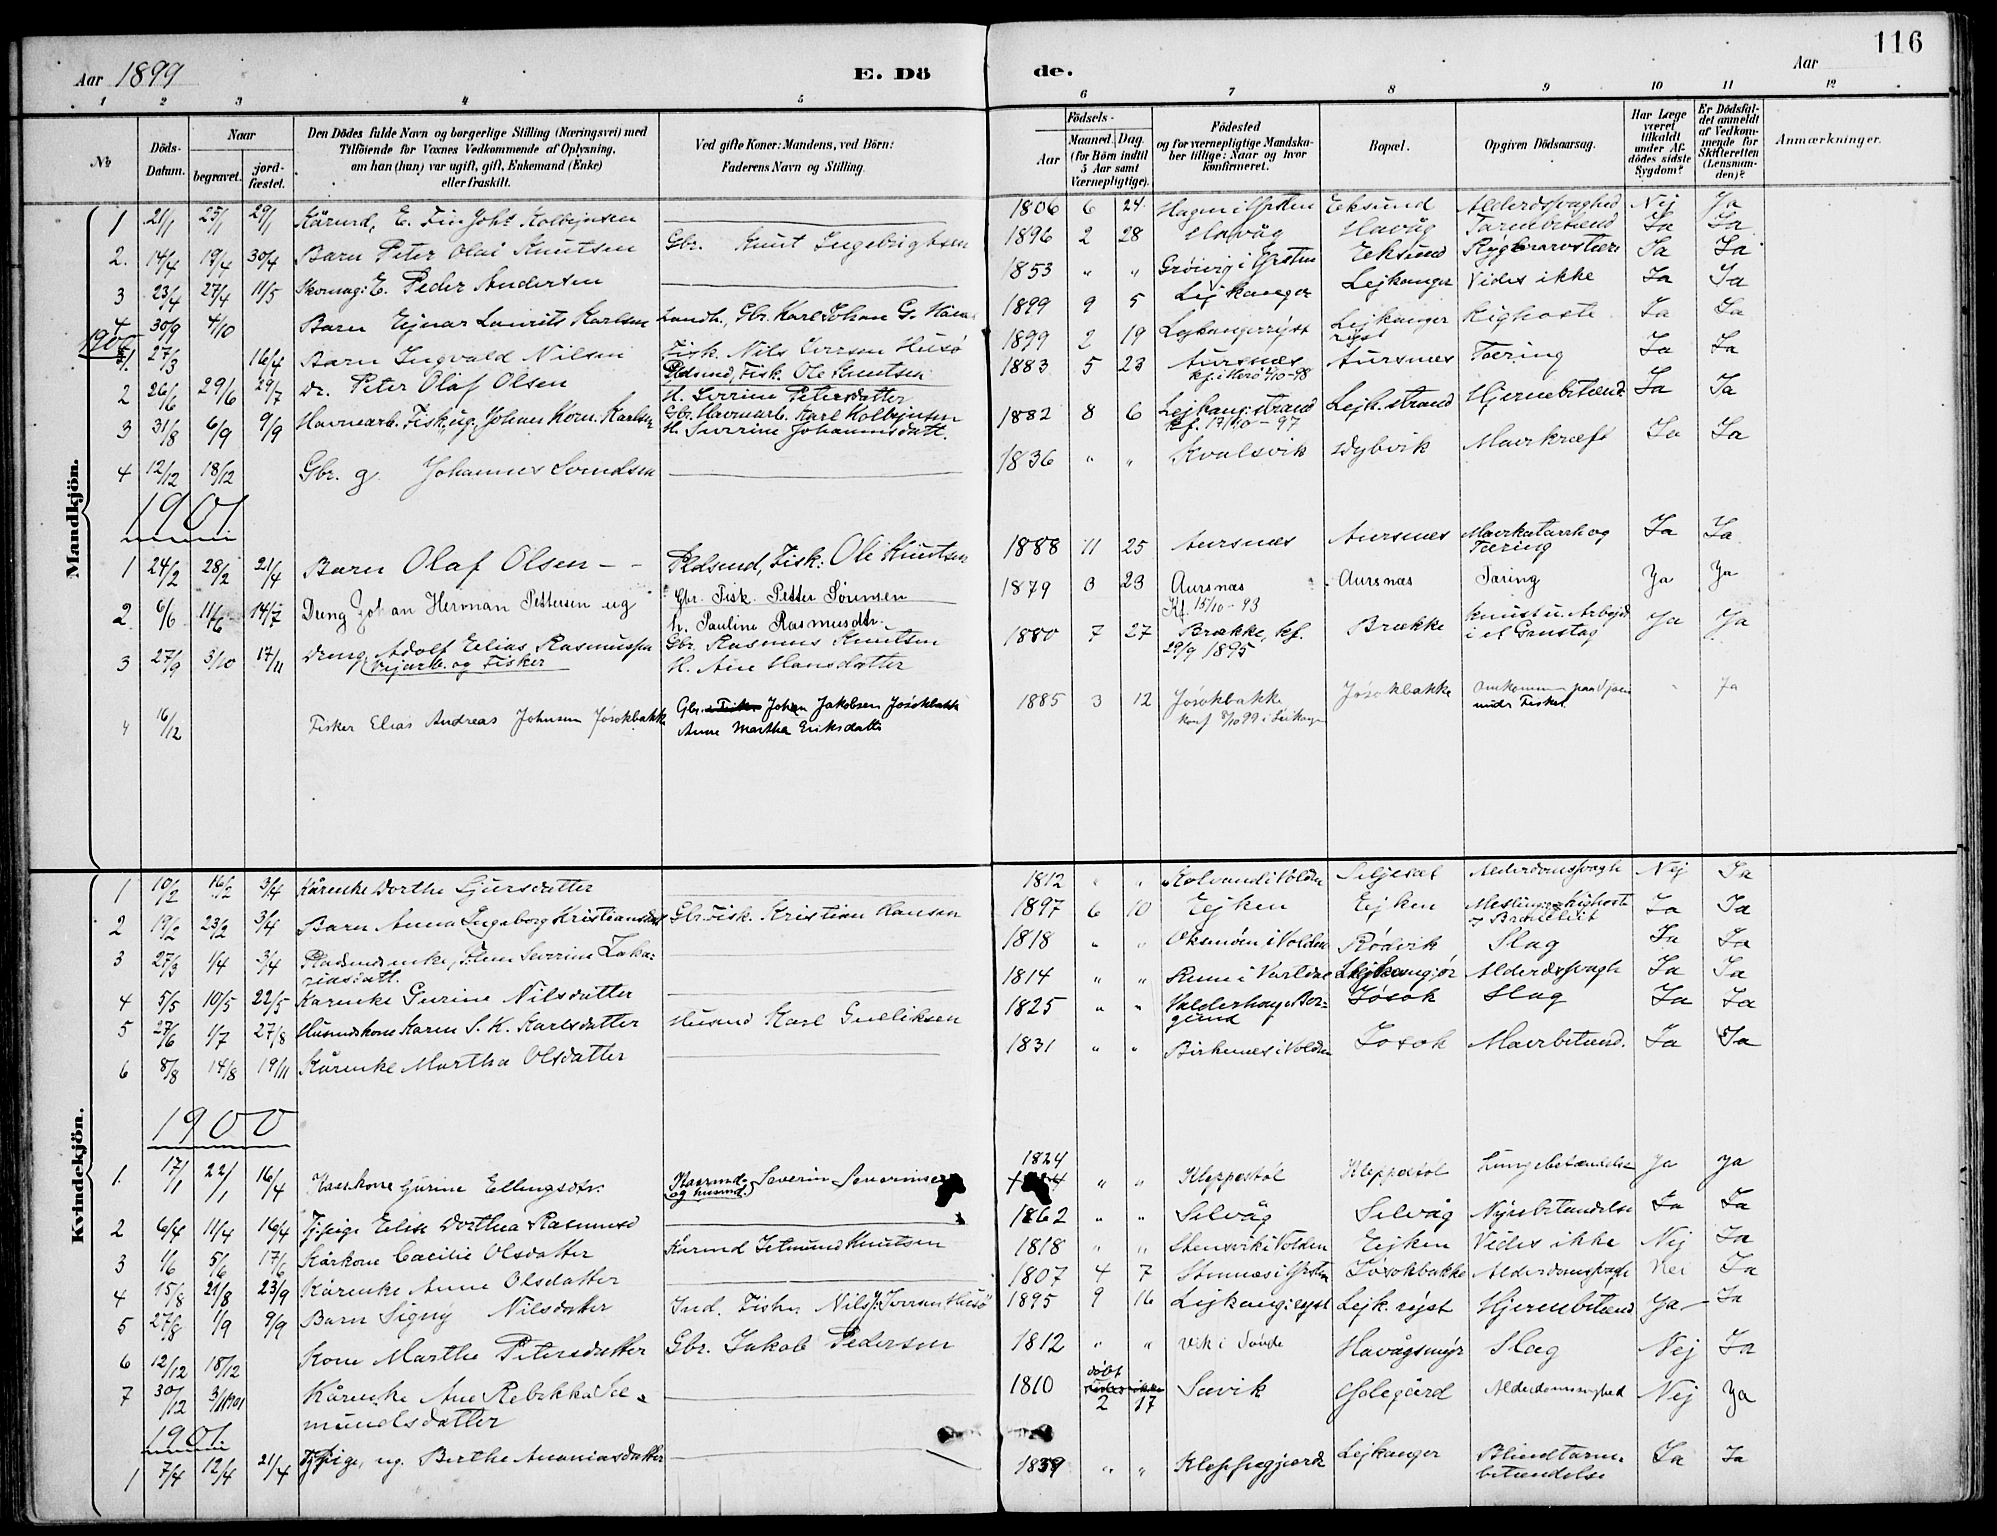 116
Aar 1899
E. Dö
de.
Aar
1 2 3 4 5 6 7 8 9 10 11 12
No
Döds-Datum.
Naar
begravet.
jord-fæstet.
Den Dödes fulde Navn og borgerlige Stilling (Næringsvei) med
Tilföiende for Voxnes Vedkommende af Oplysning,
om han (hun) var ugift, gift, Enkemand (Enke)
eller fraskilt.
Ved gifte Koner: Mandens, ved Börn:
Faderens Navn og Stilling.
Födsels-
Aar
Maaned. Dag.
(for Börn indtil
5 Aar samt
Værnepligtige).
Födested
og for værnepligtige Mandska-
ber tillige: Naar og hvor
konfirmeret.
Bopæl.
Opgiven Dödsaarsag.
Har Læge
været
tilkaldt
under Af-
dödes sidste
Sygdom?
Er Dödsfal-
det anmeldt
af Vedkom-
mende for
Skifteretten
(Lensman-
den)?
Anmærkninger.
Mandkjön.
1 21/1 25/1 29/1 Kårmd, E. Fin Johs Kolbejnsen 1806 6 24 Hagen i Ørsten Eeksund Nej Ja
2. 14/4 19/4 30/4 Barn Peter Olai Knutsen Gbr. Knut Ingebrigtsen 1896 2 28 Havåg Havåg Tarmbetænd Ja Ja
3 23/4 27/4 11/5 E. Peder Andersen 1853 " " i Ørsten Eeksund Ja Ja
4 30/9 4/10 Barn Ejnar Laurits Karlsen Landh., Gbr. Karl Johan G. 1899 9 5 Lejkanger Lejkanger Vides ikke Ja Ja
1900
1. 27/3 16/4 Barn Ingvald Nilsen Fisk. Nils Iverson Husö 1899 2 19 Lejkangerrøjst Lejkanger røjst Kighoste Ja Ja
2 26/6 29/6 29/7 Dr. Peter Olaf Olsen Pladsmd, Fisk. Ole Knutsen
H. Severine Petersdatter 1883 5 23 Aursnæs Aursnæs Tæring Ja Ja
3 31/8 6/9 9/9 Havnearb. Fisk, ug. Johan Korn. Karlsen Gbr. Havnearb. Karl Kolbejnsen
H. Severine Johannesdatt. 1882 8 6 Lejkang. strand
kf. 17/10-97 Lejk. strand Hjernebetænd. Ja Ja
4 12/12 18/12 Gbr. g. Johannes Svendsen 1836 " " Kvalsvik Dybvik Mavekræft Ja Ja
1901.
1 24/2 28/2 21/4 Barn Olaf Olsen - - Pladsmd, Fisk: Ole Knutsen 1888 11 25 Aursnæs Aursnæs Mavekatarrh og
Tæring Ja Ja
2 6/6 11/6 14/7 Dreng Johan Herman Pettersen ug Gbr. Fisk. Petter Sörensen
h. Pauline Rasmusdtr. 1879 3 23 Aursnæs
Kf. 15/10-93 Aursnæs Tæring Ja Ja
3 27/9 3/10 17/11 Dreng Adolf Eelias Rasmussen
Vejarb. og Fisker Gbr. Rasmus Knutsen
H. Ane Hansdatter 1880 7 27 Brække, kf.
29/9 1895 Brække knust u. Arbejde
i et Grustag Ja Ja
4 16/12 Fisker Elias Andreas Johnsen Jösokbakke Gbr. Johan Jakobsen Jösokbakk
Anne Martha Eriksdatter 1885 3 12 Jösokbakke Jösokbakke Omkommen paa Sjøen
under Fiskeri " Ja
Kvindekjön.
1 10/2 16/2 3/4 Kårenke Dorthe Sjursdatter 1812 " " i Volden Seljeset Alderdomssvagh Nej Ja
2 19/2 23/2 3/4 Barn Anna Ingeborg Kristiansdatt Gbr. Fisk. Kristian Hansen 1897 6 10 Eejken Eejken Meslinger, Kighoste
og Ja Ja
3 27/3 1/4 3/4 Pladsmdsenke, Severine Zaka-
riasdatt. 1818 " " i Volden Rödvik Slag Ja Ja
4 5/5 10/5 22/5 Kårenke Gurine Nilsdatter 1814 " " Alderdssvagh Ja Ja
5 27/6 1/7 27/8 Husmdskone Karen S. K. Karlsdatter Husmd Karl Gulliksen 1825 " " Valderhaug i Bor-
gund Jösok Slag Ja Ja
6 8/8 14/8 19/11 Kårenke Martha Olsdatter 1831 " " Birkenæs i Volden Josok Mavebetænd. Ja Ja
1900
1. 17/1 22/1 16/4 Kaarkone Gurine Ellingsdtr. Kaarmd.
og husmd. Severin Severinsen 1824 " " Kleppestöl Kleppestöl Lungebetændelse Ja Ja
2 6/4 11/4 16/4 Tj. pige Elise Dorthea Rasmusd 1862 " " Selvåg Selvåg Nyrebetændelse Ja Ja
3 1/6 5/6 17/6 Kårkone Cacilie Olsdatter Kårmd Setmund Knutsen 1818 " " Stensvik i Volden Eejken Vides ikke Nej Ja
4 15/8 21/8 23/9 Kårenke Anne Olsdatter 1807 4 7 i Ørsten Jösokbakke Alderdomssvagh Nei Ja
5 27/8 1/9 9/9 Barn Signy Nilsdatter Ind. Fisker Nils Iverson Husö 1895 9 16 Lejkang: røjst Lejk. røjst Hjernebetænd Ja Ja
6 12/12 18/12 Kone Marthe Petersdatter Gbr. Jakob Pedersen 1812 " " Vik i Søvde Havågsmyr Slag Nej Ja
7 30/12 3/1 1901 Kårenke Ane Rebekka Sel-
mundsdatter 1810 döbt
2 17 Sævik Alderdomssvaghed Nej Ja
1901.
1 7/4 12/4 21/4 Tj. pige, ug. Berthe Ananiasdatter 1839 " " Kleppegjerd Lejkanger Blindtarm-
betændelse Ja Ja